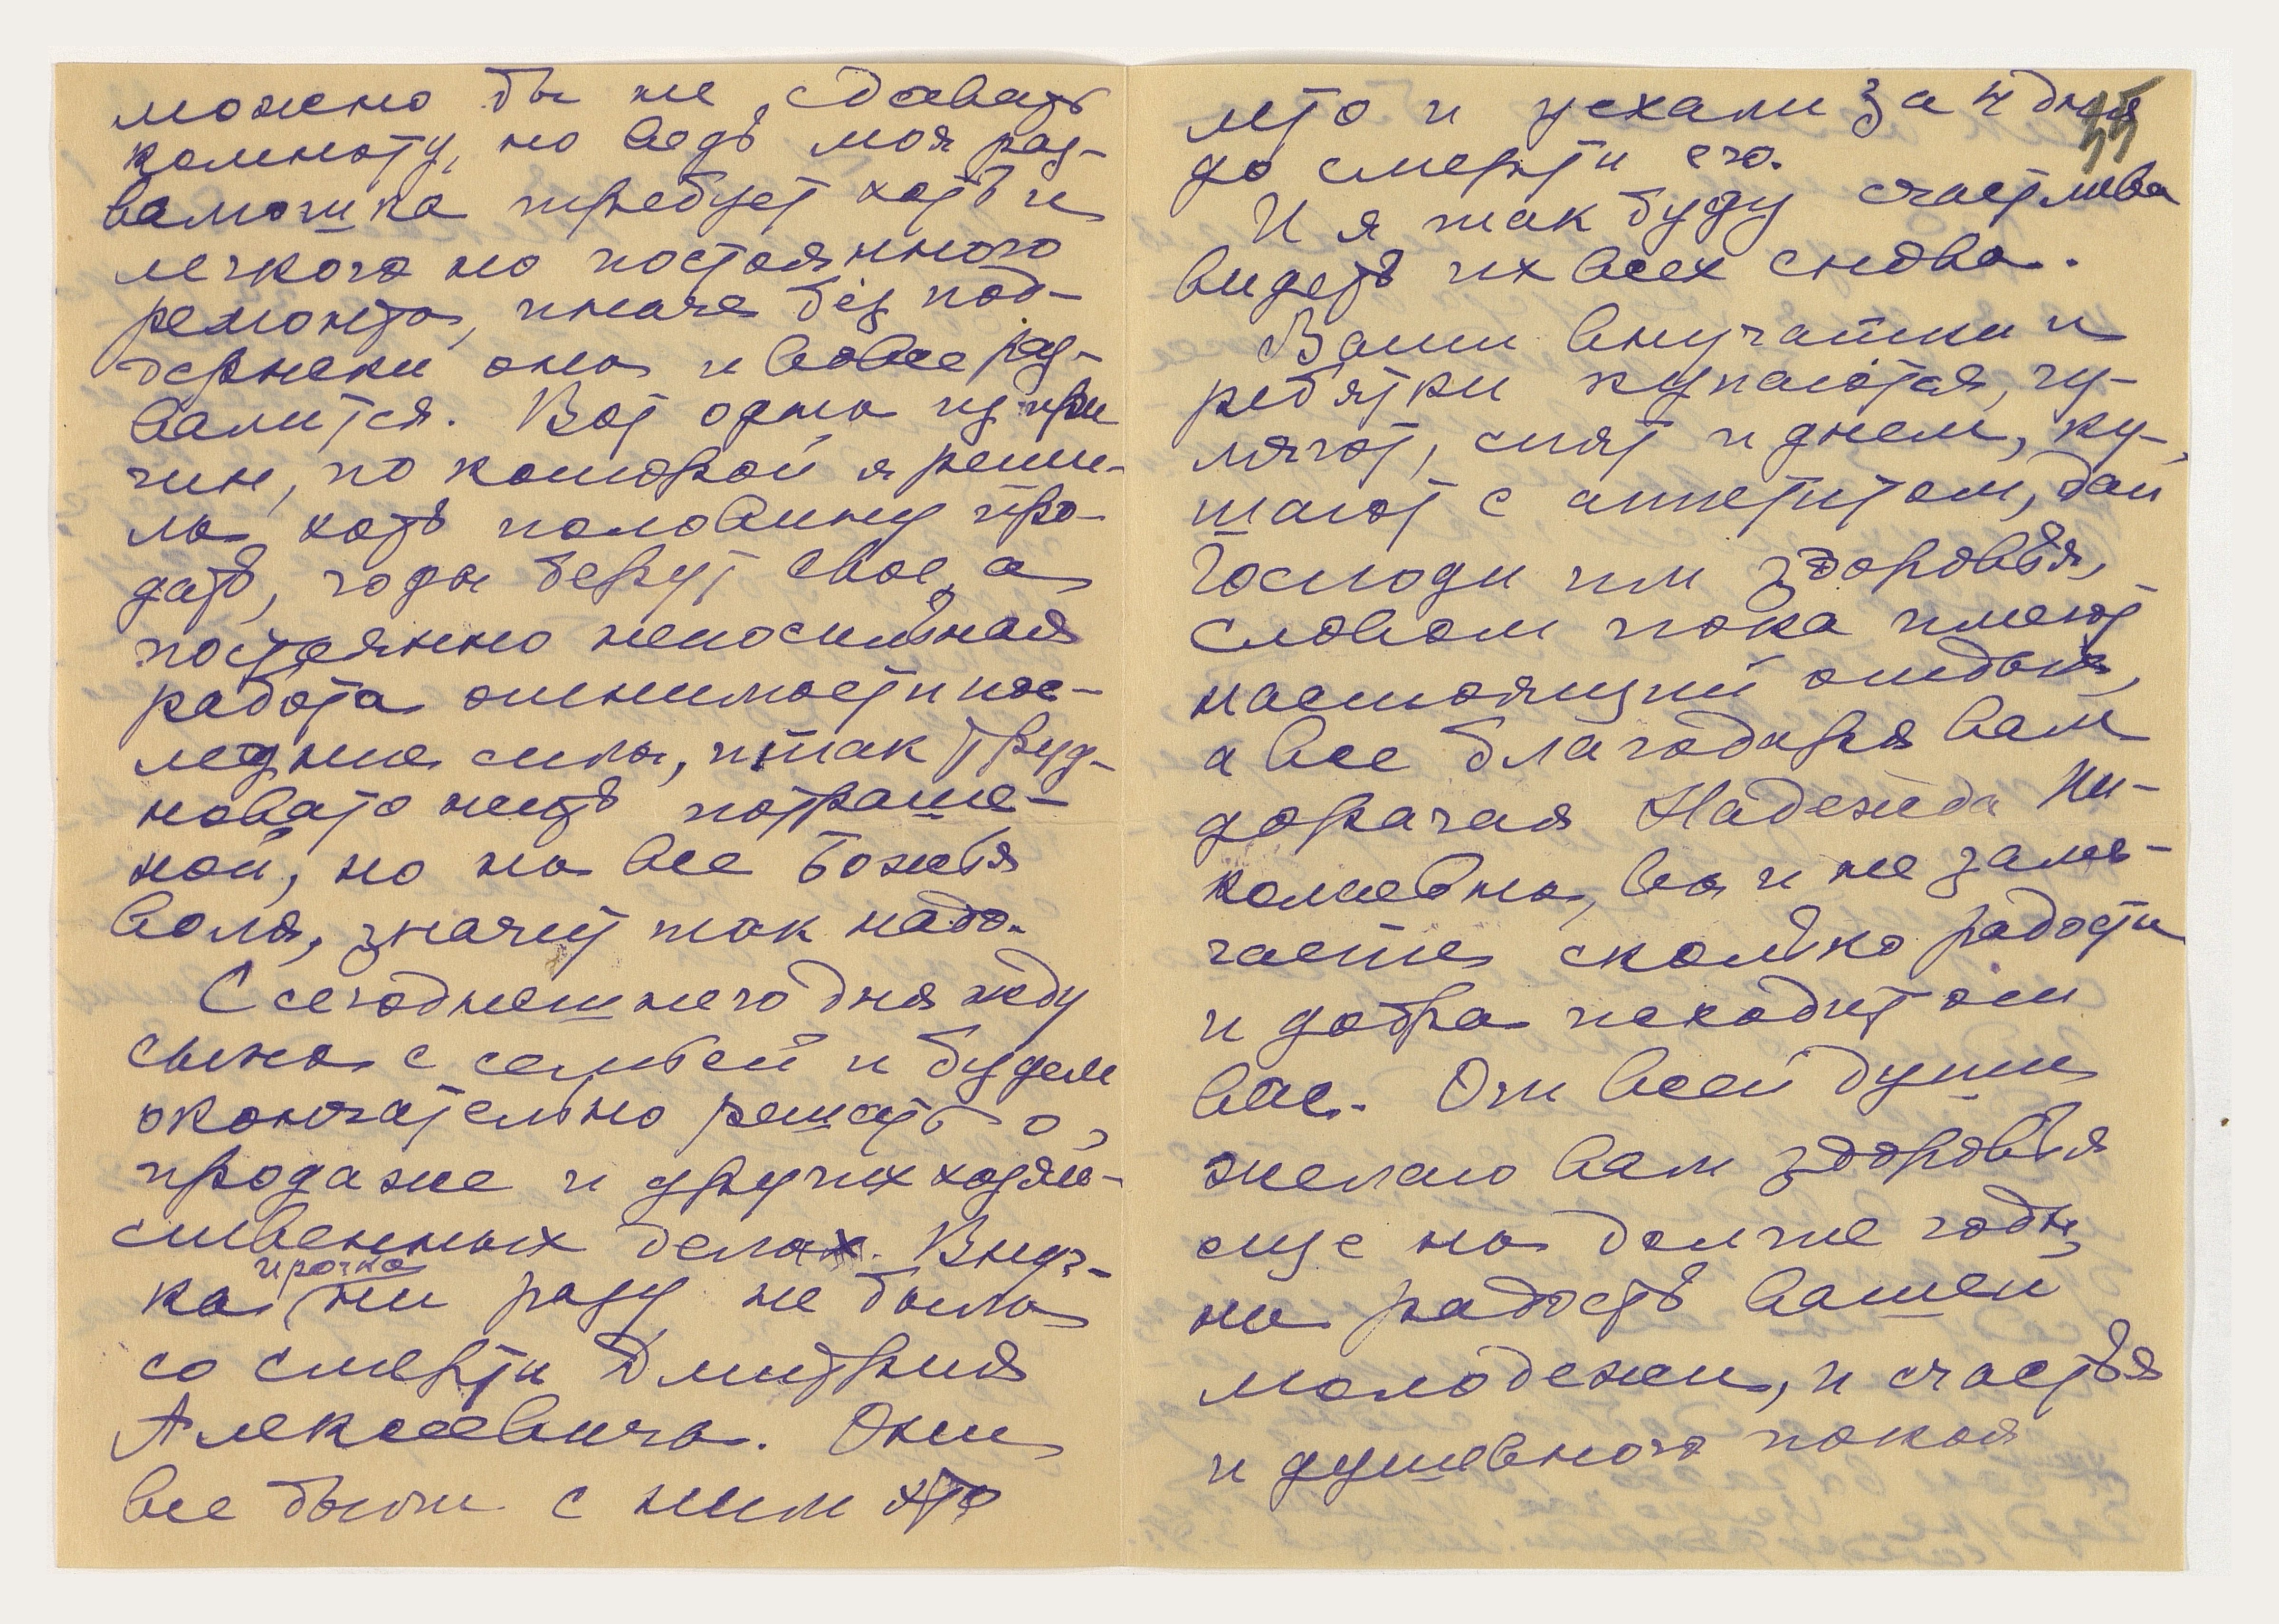 можно бы не сдавать
комнату, но ведь моя раз-
валюшка требует хоть и
легкого но постоянного
ремонта, иначе без под-
держки она и вовсе раз-
валится. Вот одна из при
чин, по которой я реши-
ла хоть половину про-
дать, годы берут свое, а
постоянно непосильная
работа отнимает и пос-
ледние силы, и так труд-
новато жить
ной, но на все Божья
воля, значит так надо.
С сегоднешнего дня жду
сына с семьей и будем
окончательно решать о
продаже и других хозяй-
ственных делах. Внуч-
ка ни разу не была
со смерти Дмитрия
Алексеевича. Они
все были с ним
лето и уехали за 4 дня
35
до смерти его.
И я так буду счастлива
видеть их всех снова.
Ваши внучатки и
ребятки купаются, гу-
ляют, спят и днем, ку-
шают с аппетитом, дай
Господи им здоровья,
словом пока имеют
настоящий отдых,
а все благодаря вам
дорогая Надежда Ни-
колаевна, вы и не заме-
чаете сколько радости
и добра исходит от
вас. От всей души
желаю вам здоровья
еще на долгие годы,
на радость вашей
молодежи, и счастья
и душевного покоя